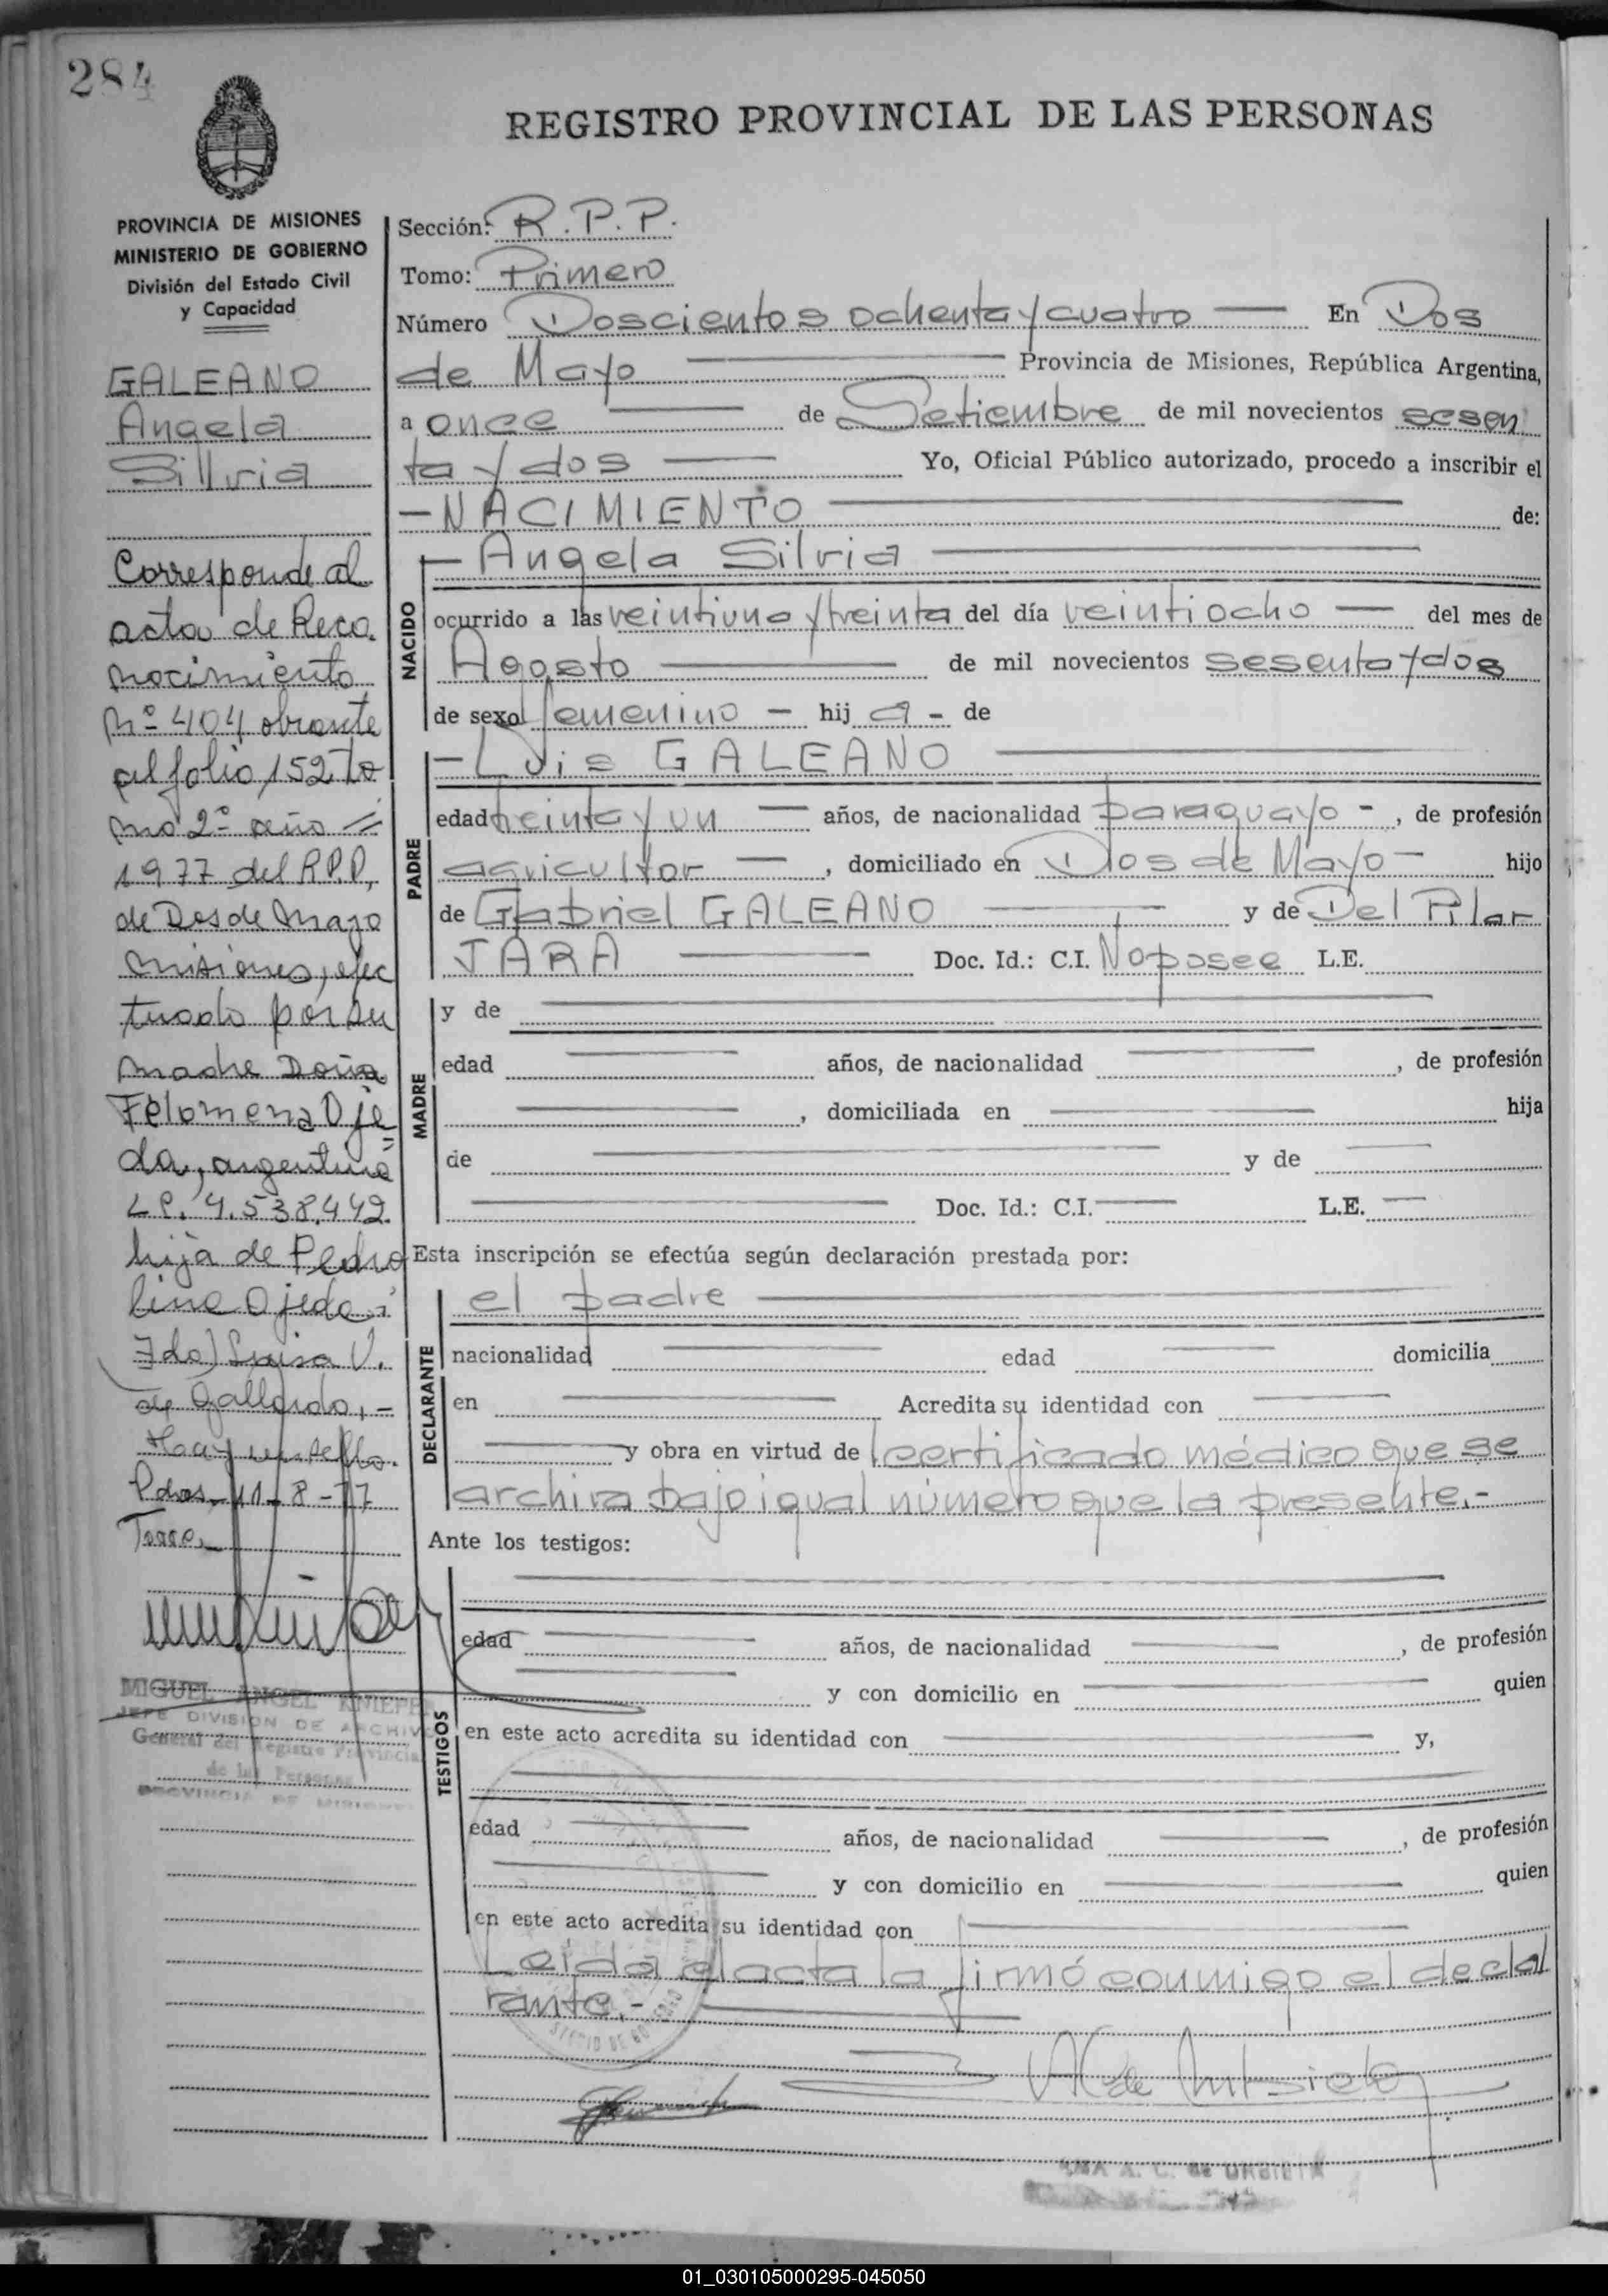 284
REGISTRO PROVINCIAL DE LAS PERSONAS
PROVINCIA DE MISIONES
MINISTERIO DE GOBIERNO
División del Estado Civil
y Capacidad
GALEANO
Angela
Sillvia
Corresponde al
acta de Reco
nocimiento
Nº 404 obrante
al folio 152 To
mo 2º año
1977 del R.P.P,
de Dos de Mayo
Misiones, efec
tuado por su
madre Doña
Felomena Oje
da, argentina
L.C. 4.538.442.
hija de Pedro
lina Ojeda
Fdo) Luisa V.
de Gallardo, -
Hay un sello.
Pdas, 11-8-77
MIGUEL ANGEL KNIEPE
JEFE DIVISION DE ARCHIVO
General del Registro Provincial
de las Personas
PROVINCIA DE MISIONES
Sección: R.P.P.
Tomo: Primero
Número Doscientos ochenta y cuatro — En Dos
de Mayo — Provincia de Misiones, República Argentina,
a once — de Setiembre de mil novecientos sesen
ta y dos — Yo, Oficial Público autorizado, procedo a inscribir el
- NACIMIENTO — de:
NACIDO
- Angela Silvia —
ocurrido a las veintiuno y treinta del día veintiocho — del mes de
Agosto — de mil novecientos sesenta y dos
de sexo femenino - hij a - de
PADRE
- Luis GALEANO —
edad treinta y un — años, de nacionalidad paraguayo -, de profesión
agricultor —, domiciliado en Dos de Mayo - hijo
de Gabriel GALEANO — y de Del Pilar
JARA — Doc. Id.: C.I. No posee L.E.
MADRE
y de —
edad — años, de nacionalidad —, de profesión
—, domiciliada en — hija
de — y de —
— Doc. Id.: C.I. — L.E. —
Esta inscripción se efectúa según declaración prestada por:
DECLARANTE
el padre —
nacionalidad — edad — domicilia
en — Acredita su identidad con —
— y obra en virtud de certificado médico que se
archiva bajo igual número que la presente.-
Ante los testigos:
TESTIGOS
edad — años, de nacionalidad —, de profesión
— y con domicilio en — quien
en este acto acredita su identidad con — y,
edad — años, de nacionalidad —, de profesión
— y con domicilio en — quien
en este acto acredita su identidad con —
Leída el acta la firmó conmigo el decla
rante.-
01_030105000295-045050